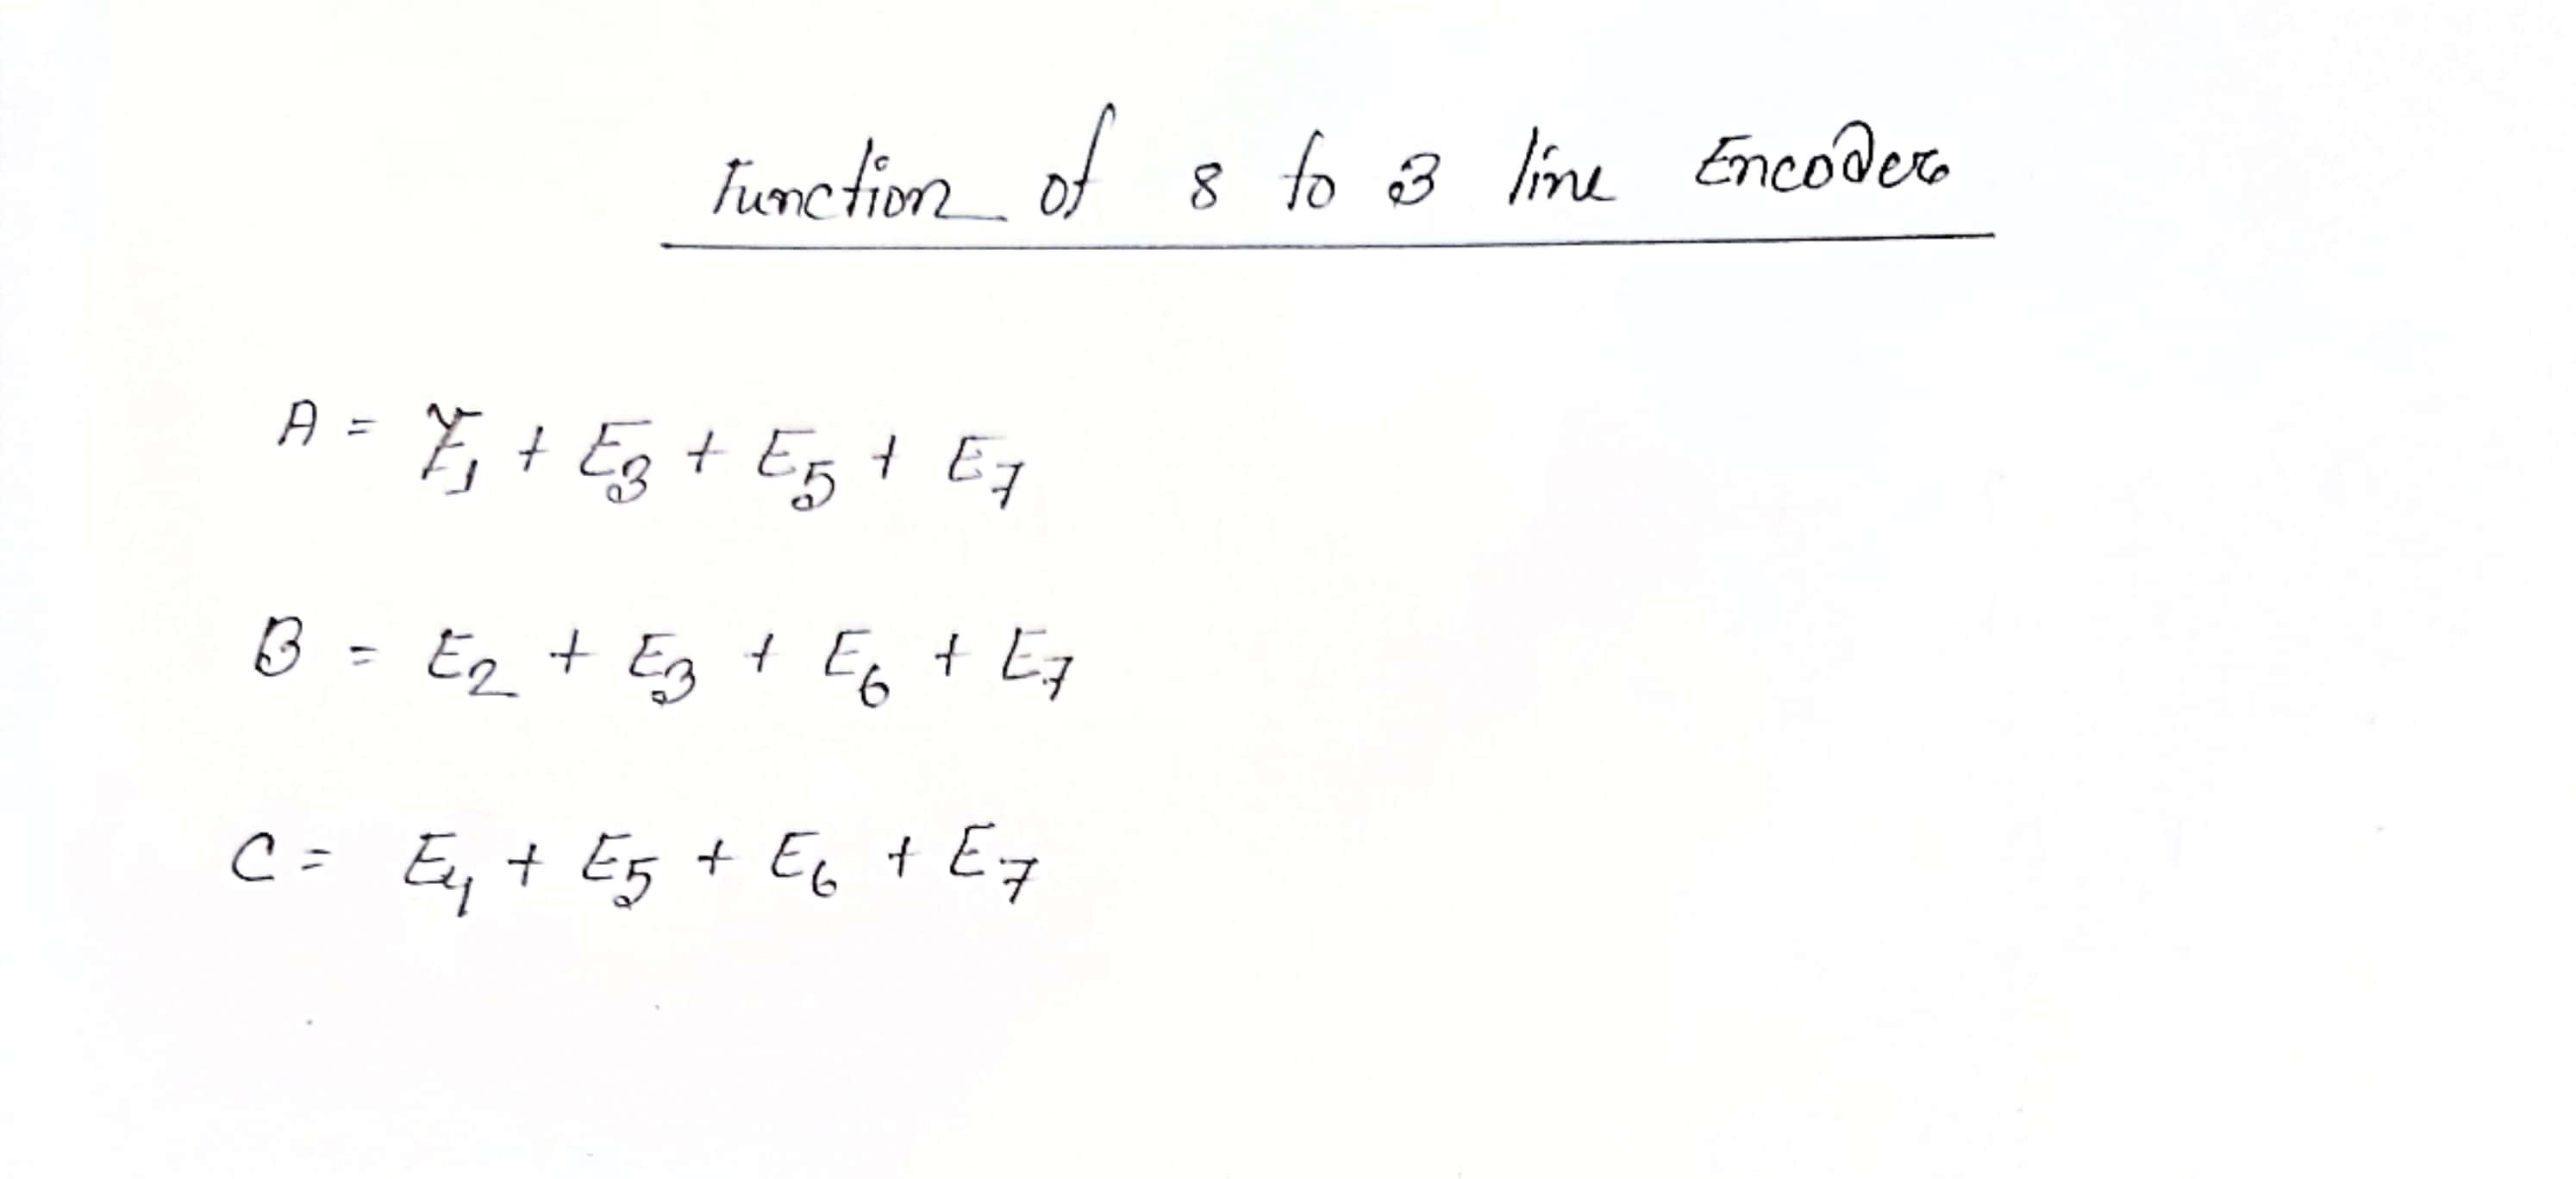 Function of 8 to 3 line Encoder
A = E₁ + E₃ + E₅ + E₇
B = E₂ + E₃ + E₆ + E₇
C = E₄ + E₅ + E₆ + E₇